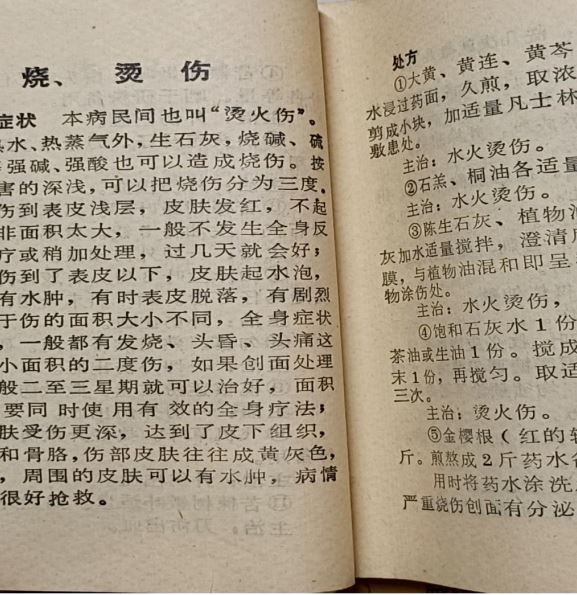 烧、烫伤
症状 本病民间也叫“烫火伤”。
水、热蒸气外，生石灰，烧碱、硫
强碱、强酸也可以造成烧伤。按
害的深浅，可以把烧伤分为三度。
伤到表皮浅层，皮肤发红，不起
非面积太大，一般不发生全身反
疗或稍加处理，过几天就会好；
伤到了表皮以下，皮肤起水泡，
有水肿，有时表皮脱落，有剧烈
于伤的面积大小不同，全身症状
，一般都有发烧、头昏、头痛这
小面积的二度伤，如果创面处理
般二至三星期就可以治好，面积
要同时使用有效的全身疗法；
肤受伤更深，达到了皮下组织，
和骨胳，伤部皮肤往往成黄灰色，
，周围的皮肤可以有水肿，病情
很好抢救。
处方
①大黄、黄连、黄芩
水浸过药面，久煎，取浓
剪成小块，加适量凡士林
敷患处。
主治：水火烫伤。
②石羔、桐油各适量
主治：水火烫伤。
③陈生石灰、植物油
灰加水适量搅拌，澄清后
膜，与植物油混和即呈
物涂伤处。
主治：水火烫伤，
④饱和石灰水1份
茶油或生油1份。搅成
末1份，再搅匀。取适
三次。
主治：烫火伤。
⑤金樱根（红的较
斤。煎熬成2斤药水备
用时将药水涂洗
严重烧伤创面有分泌